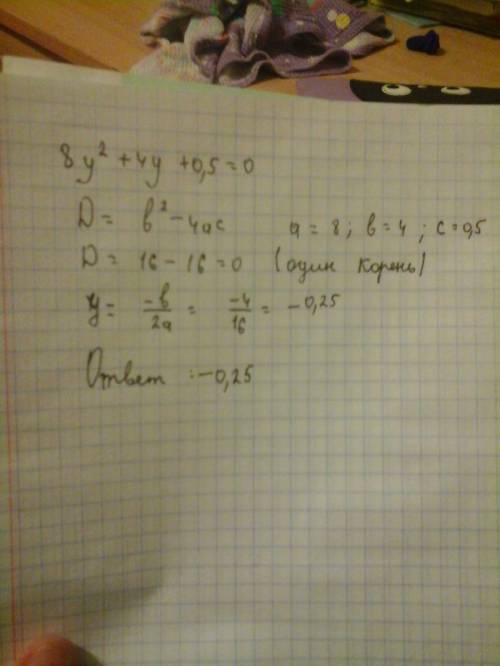 8y² + 4y + 0,5 = 0
D = b² - 4ac a = 8; b = 4; c = 0,5
D = 16 - 16 = 0 (один корень)
y = -b/2a = -4/16 = -0,25
Ответ: -0,25